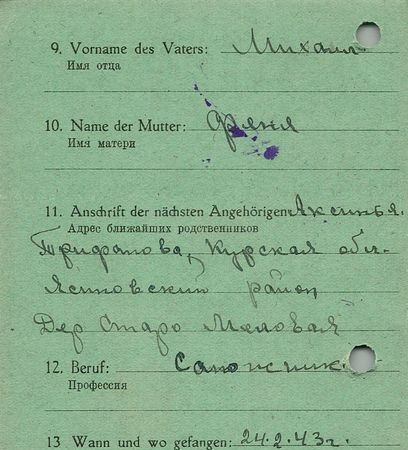 9. Vorname des Vaters: Михаил
Имя отца
10. Name der Mutter: Фряня
Имя матери
11. Anschrift der nächsten Angehörigen Аксинья
Адрес ближайших родственников
Трифанова, Курская обл-
район
Дер Старо Меловая
12. Beruf: Сапожник.
Профессия
13 Wann und wo gefangen: 24.2.43 г.